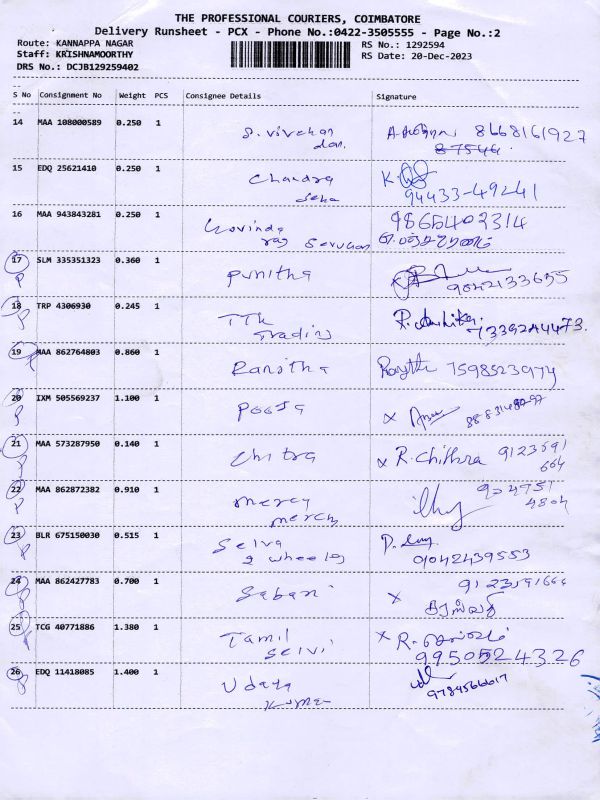 THE PROFESSIONAL COURIERS, COIMBATORE
Delivery Runsheet - PCX - Phone No.:0422-3505555 - Page No.:2
Route: KANNAPPA NAGAR
RS No.: 1292594
Staff: KRISHNAMOORTHY
RS Date: 20-Dec-2023
DRS No.: DCJB129259402
S No Consignment No Weight PCS Consignee Details Signature
14 MAA 108000589 0.250 1 S. Vivekan 8668161927
dan. 87544
15 EDQ 25621410 0.250 1 Chandra K.
Seka 94433-49241
16 MAA 943843281 0.250 1 Govinda 9865402314
raj Saravanan
17 SLM 335351323 0.360 1 Punitha 9042133655
P
18 TRP 4306930 0.245 1 TTK
P Trading 7339244473.
19 MAA 862764803 0.860 1 Ranjitha 7598523974
P
20 IXM 505569237 1.100 1 Pooja x
P
21 MAA 573287950 0.140 1 Chitra x R. Chithra 9123591
P 664
22 MAA 862872382 0.910 1 Mercy 904751
P mercy 4804
23 BLR 675150030 0.515 1 Selva
P 2 wheeler 9042439553
24 MAA 862427783 0.700 1 Sabari 9123591664
P x
25 TCG 40771886 1.380 1 Tamil x R.
P Selvi 9950524326
26 EDQ 11418085 1.400 1 Udaya
P Kumar 9784566617